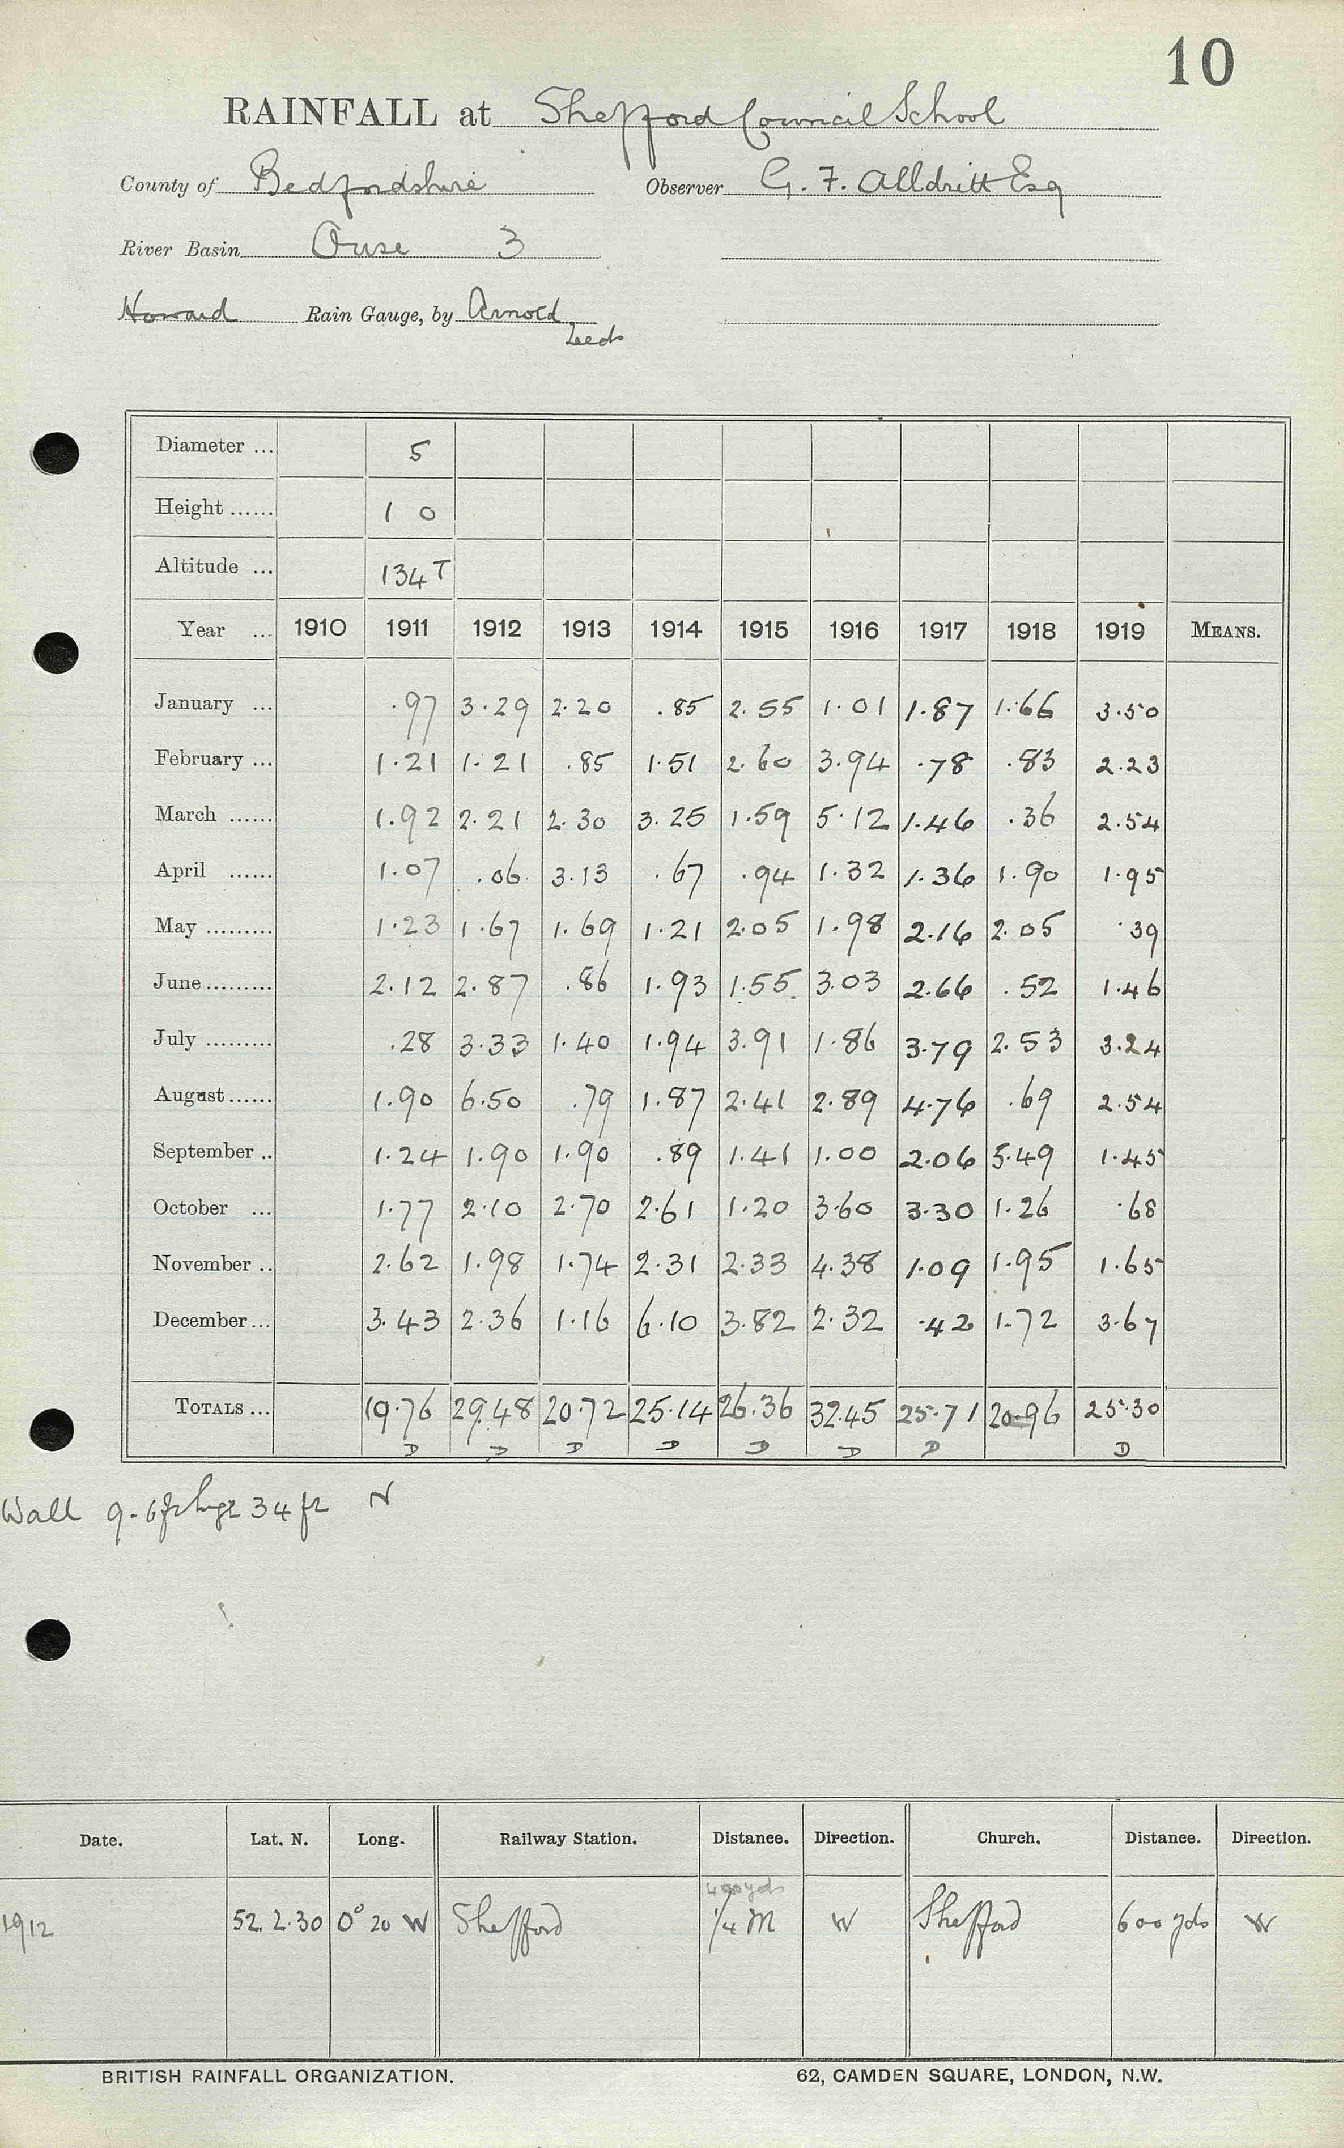 10
RAINFALL at Shefford Council School
County of Bedfordshire Observer G. F. Alldritt Esq
River Basin Ouse 3
Howard Rain Gauge, by Arnold
Leeds
Diameter ... 5
Height ...... 1 0
Altitude ... 134 T
Year ... 1910 1911 1912 1913 1914 1915 1916 1917 1918 1919 MEANS.
January ... .97 3.29 2.20 .85 2.55 1.01 1.87 1.66 3.50
February ... 1.21 1.21 .85 1.51 2.60 3.94 .78 .83 2.23
March ...... 1.92 2.21 2.30 3.25 1.59 5.12 1.46 .36 2.54
April ...... 1.07 .06 3.13 .67 .94 1.32 1.36 1.90 1.95
May ......... 1.23 1.67 1.69 1.21 2.05 1.98 2.16 2.05 .39
June ......... 2.12 2.87 .86 1.93 1.55 3.03 2.66 .52 1.46
July ......... .28 3.33 1.40 1.94 3.91 1.86 3.79 2.53 3.24
August ...... 1.90 6.50 .79 1.87 2.41 2.89 4.76 .69 2.54
September .. 1.24 1.90 1.90 .89 1.41 1.00 2.06 5.49 1.45
October ... 1.77 2.10 2.70 2.61 1.20 3.60 3.30 1.26 .68
November .. 2.62 1.98 1.74 2.31 2.33 4.38 1.09 1.95 1.65
December ... 3.43 2.36 1.16 6.10 3.82 2.32 .42 1.72 3.67
TOTALS ... 19.76 29.48 20.72 25.14 26.36 32.45 25.71 20.96 25.30
D D D D D D D D
Wall 9.6 ft 34 ft N
Date. Lat. N. Long. Railway Station. Distance. Direction. Church. Distance. Direction.
400 yds
1912 52. 2. 30 0° 20 W Shefford 1/4 M W Shefford 600 yds W
BRITISH RAINFALL ORGANIZATION. 62, CAMDEN SQUARE, LONDON, N.W.